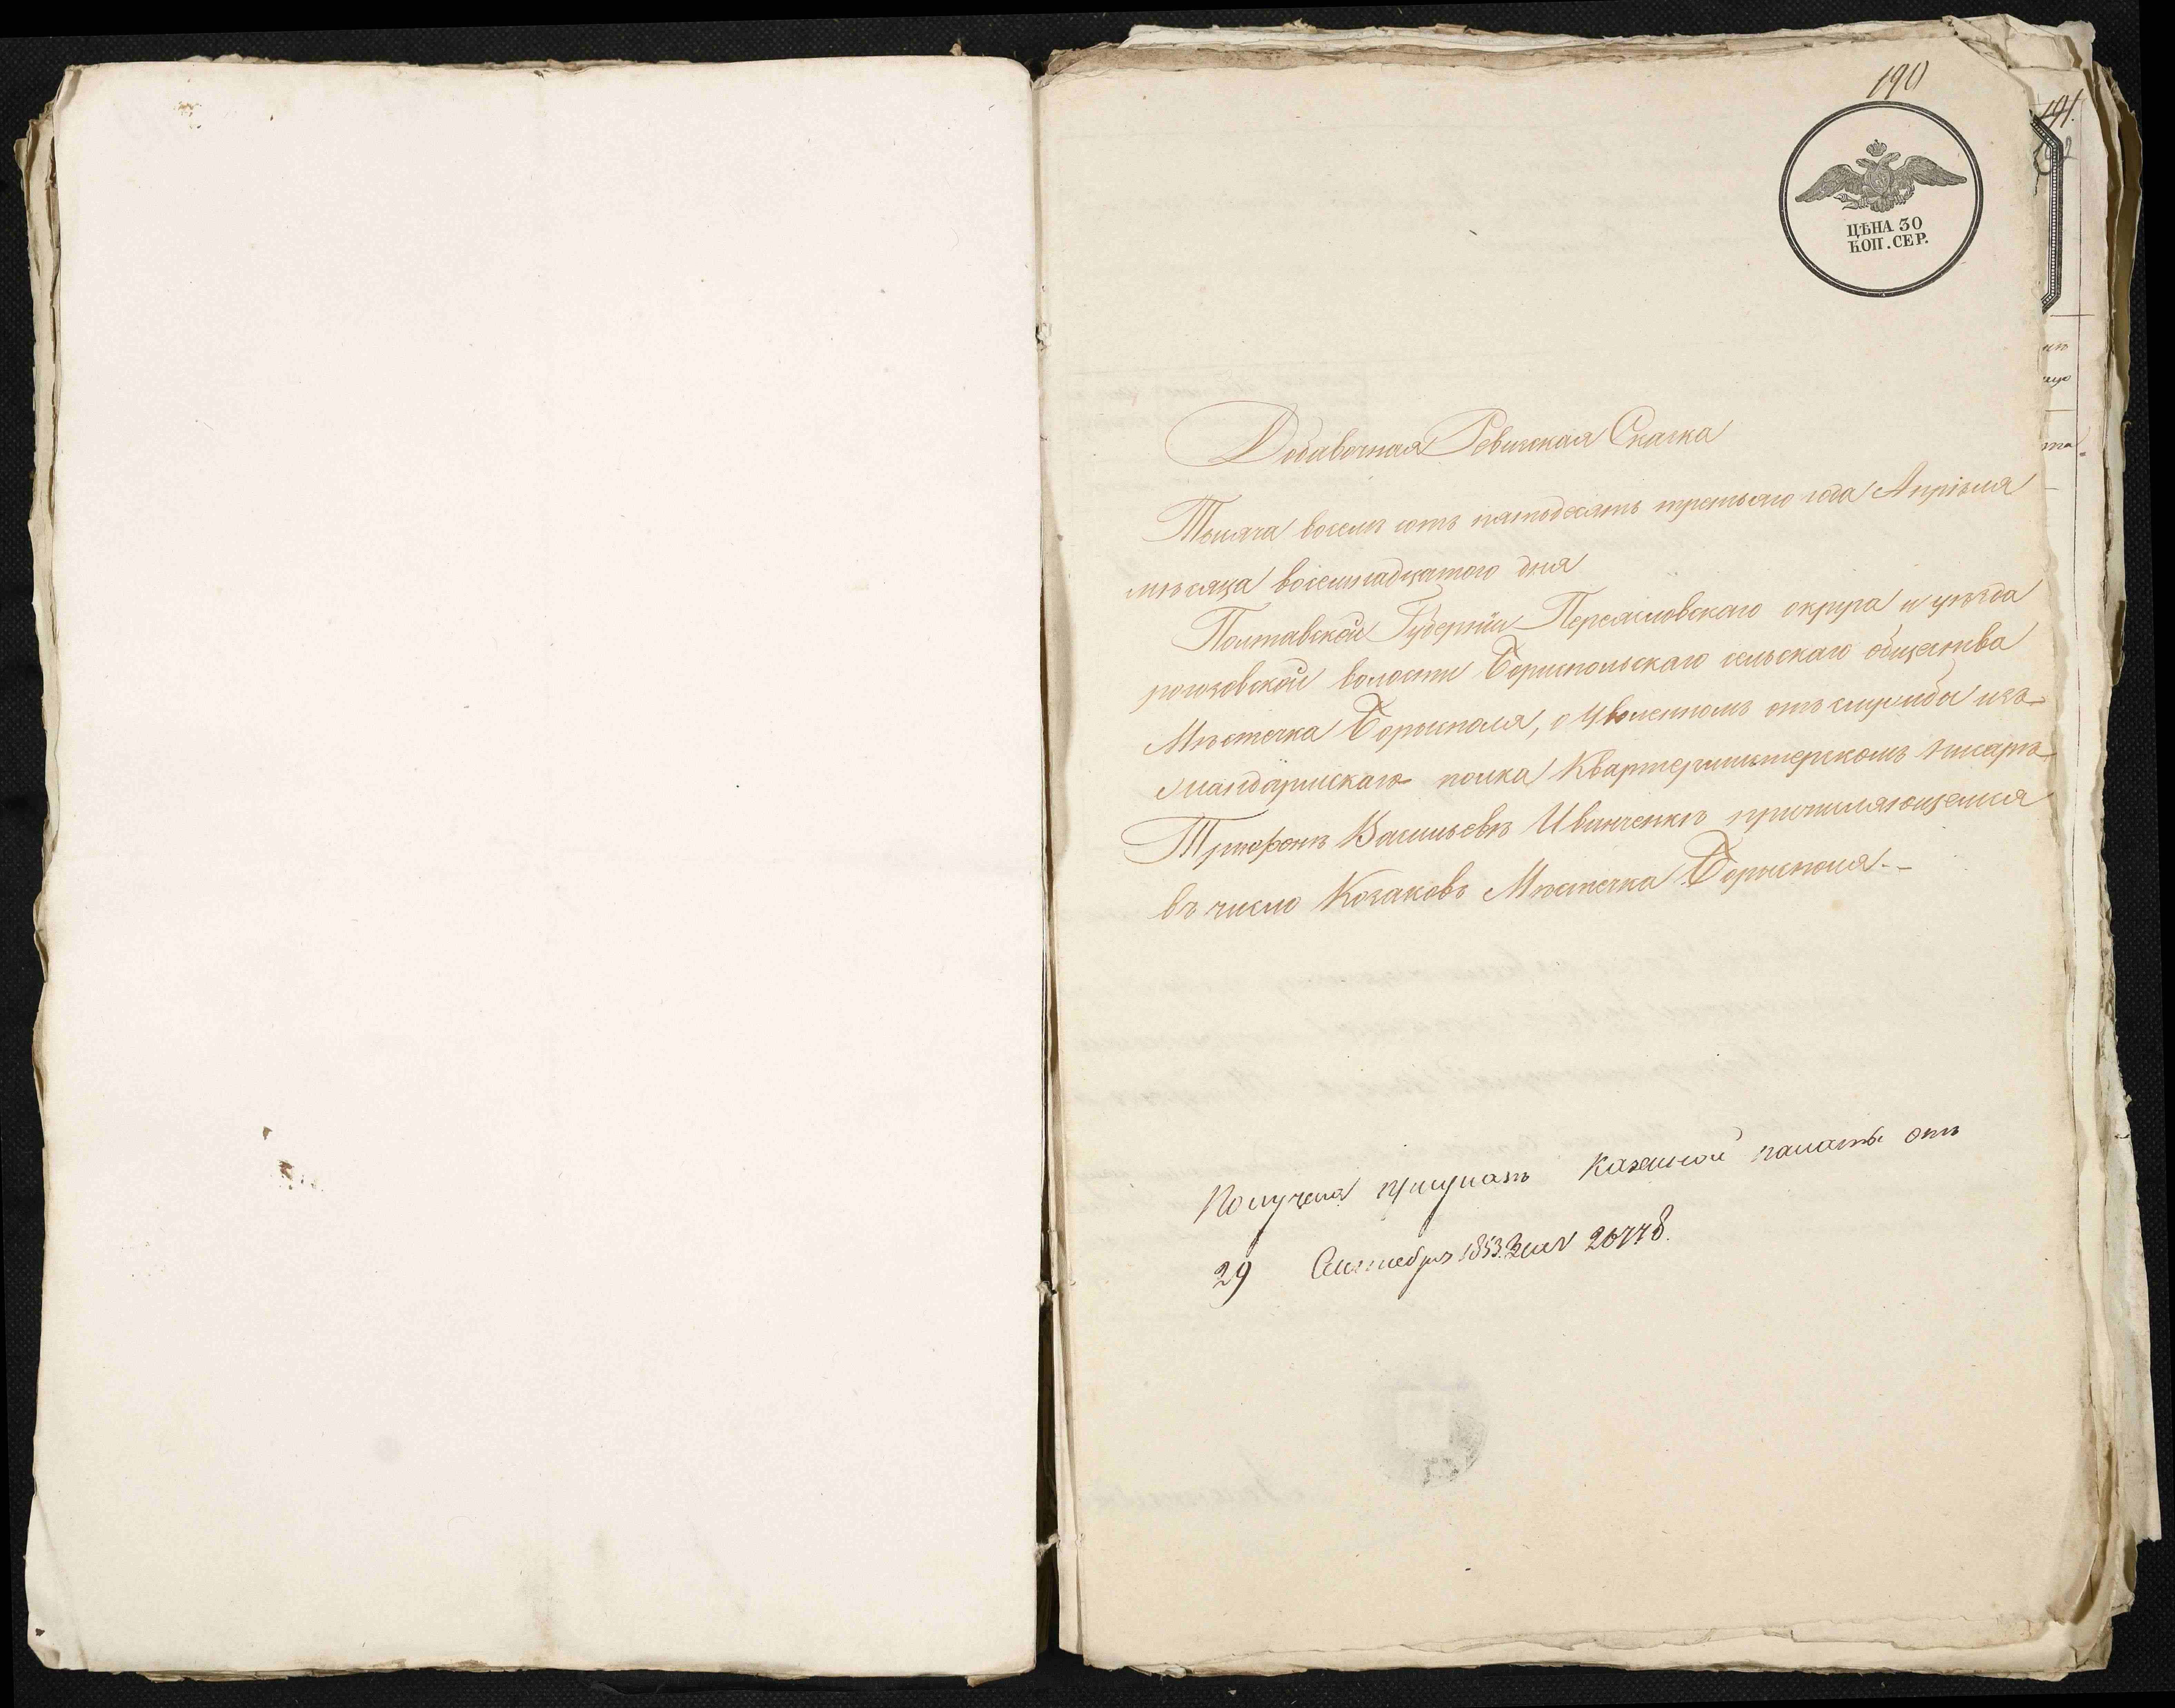 190
191.
ЦѢНА 30
КОП. СЕР.
Добавочная Ревизская Сказка
Тысяча восемь сотъ пятьдесятъ третьяго года Апрѣля
мѣсяца восемнадцатого дня
Полтавской Губерніи Переяславскаго округа и уѣзда
рогозовской волости Бориспольскаго сельскаго общества
Мѣстечка Борисполя, о Уволенномъ отъ службы изъ
жандармскаго полка Квартермистерскомъ писарѣ
Трифонѣ Васильевѣ Иванченкѣ причисляющемся
въ число Козаковъ Мѣстечка Борисполя.
Получена при указѣ Казенной палаты отъ
29 Сентября 1853. за №